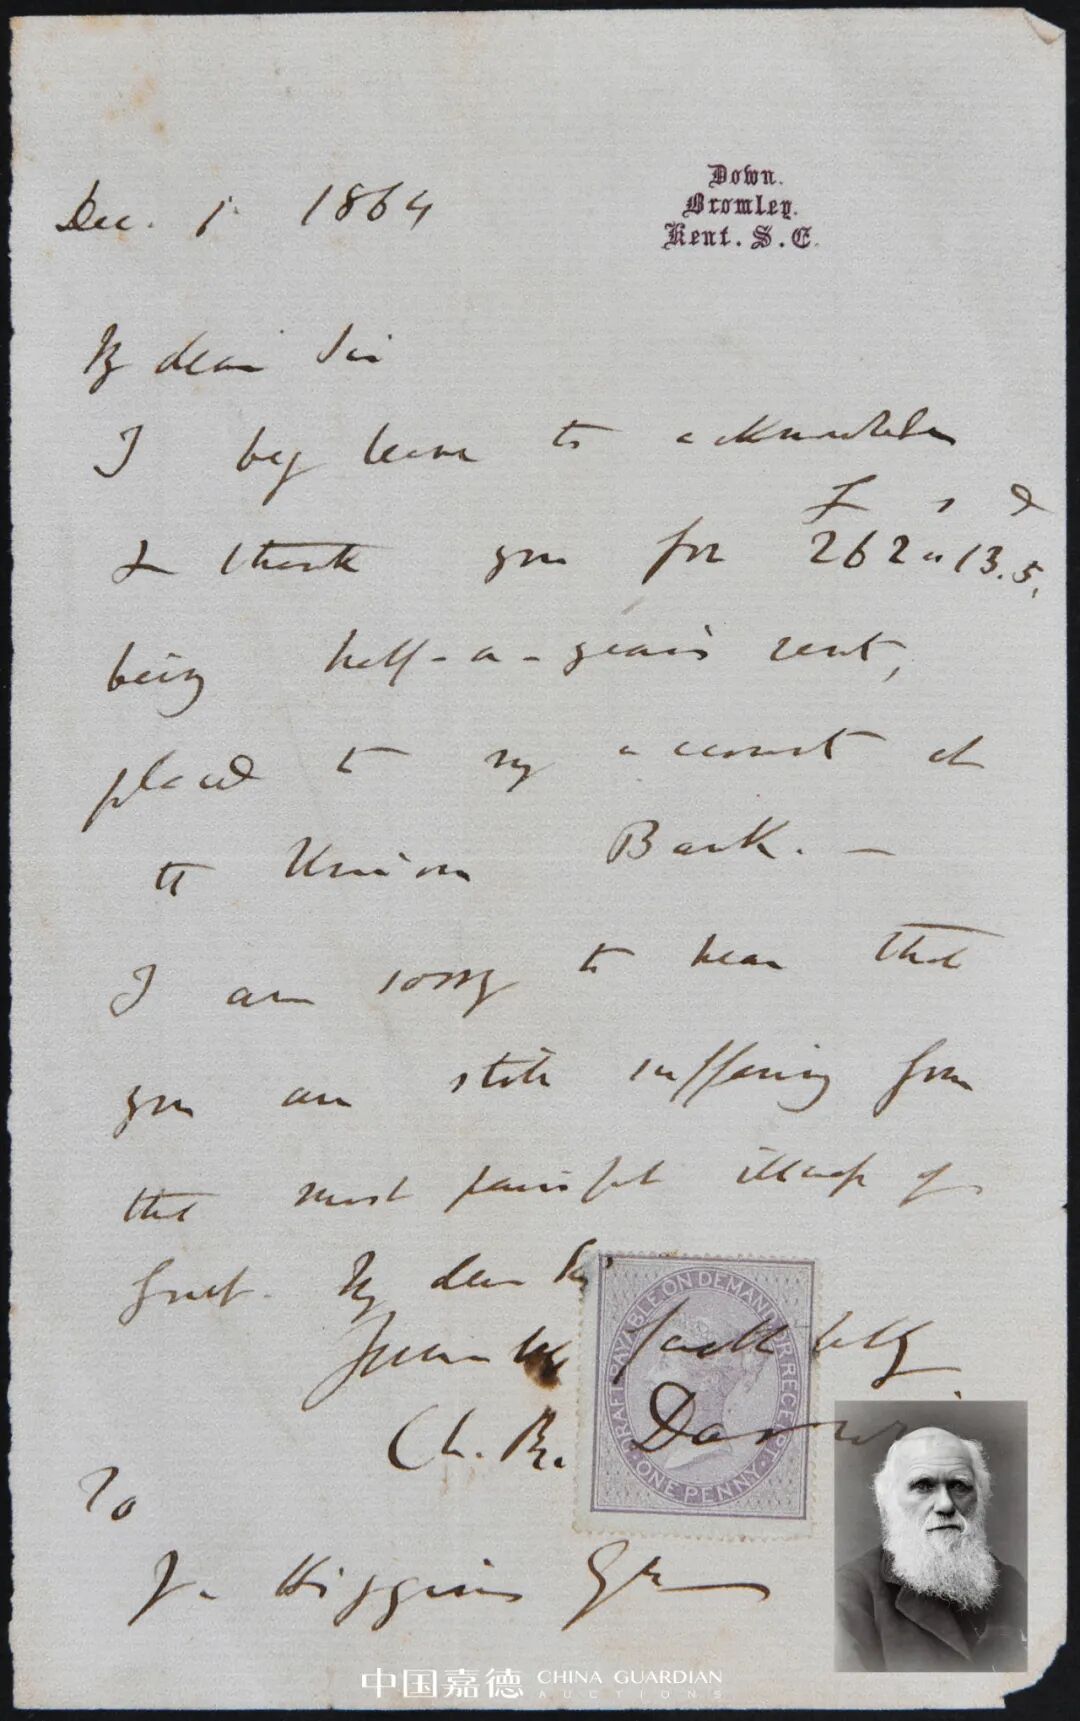 Dec. 1. 1864
Down.
Bromley.
Kent. S.E.
My dear Sir
I beg leave to acknowledge
£ s d
& thank you for 262 " 13. 5,
being half-a-year's rent,
placed to my account at
the Union Bank. —
I am sorry to hear that
you are still suffering from
that most painful illness of
gout. My dear Sir
Yours very faithfully
Ch. R. Darwin
DRAFT PAYABLE ON DEMAND, OR RECEIPT
ONE PENNY
To
J. Higgins Esq
中国嘉德 CHINA GUARDIAN
AUCTIONS